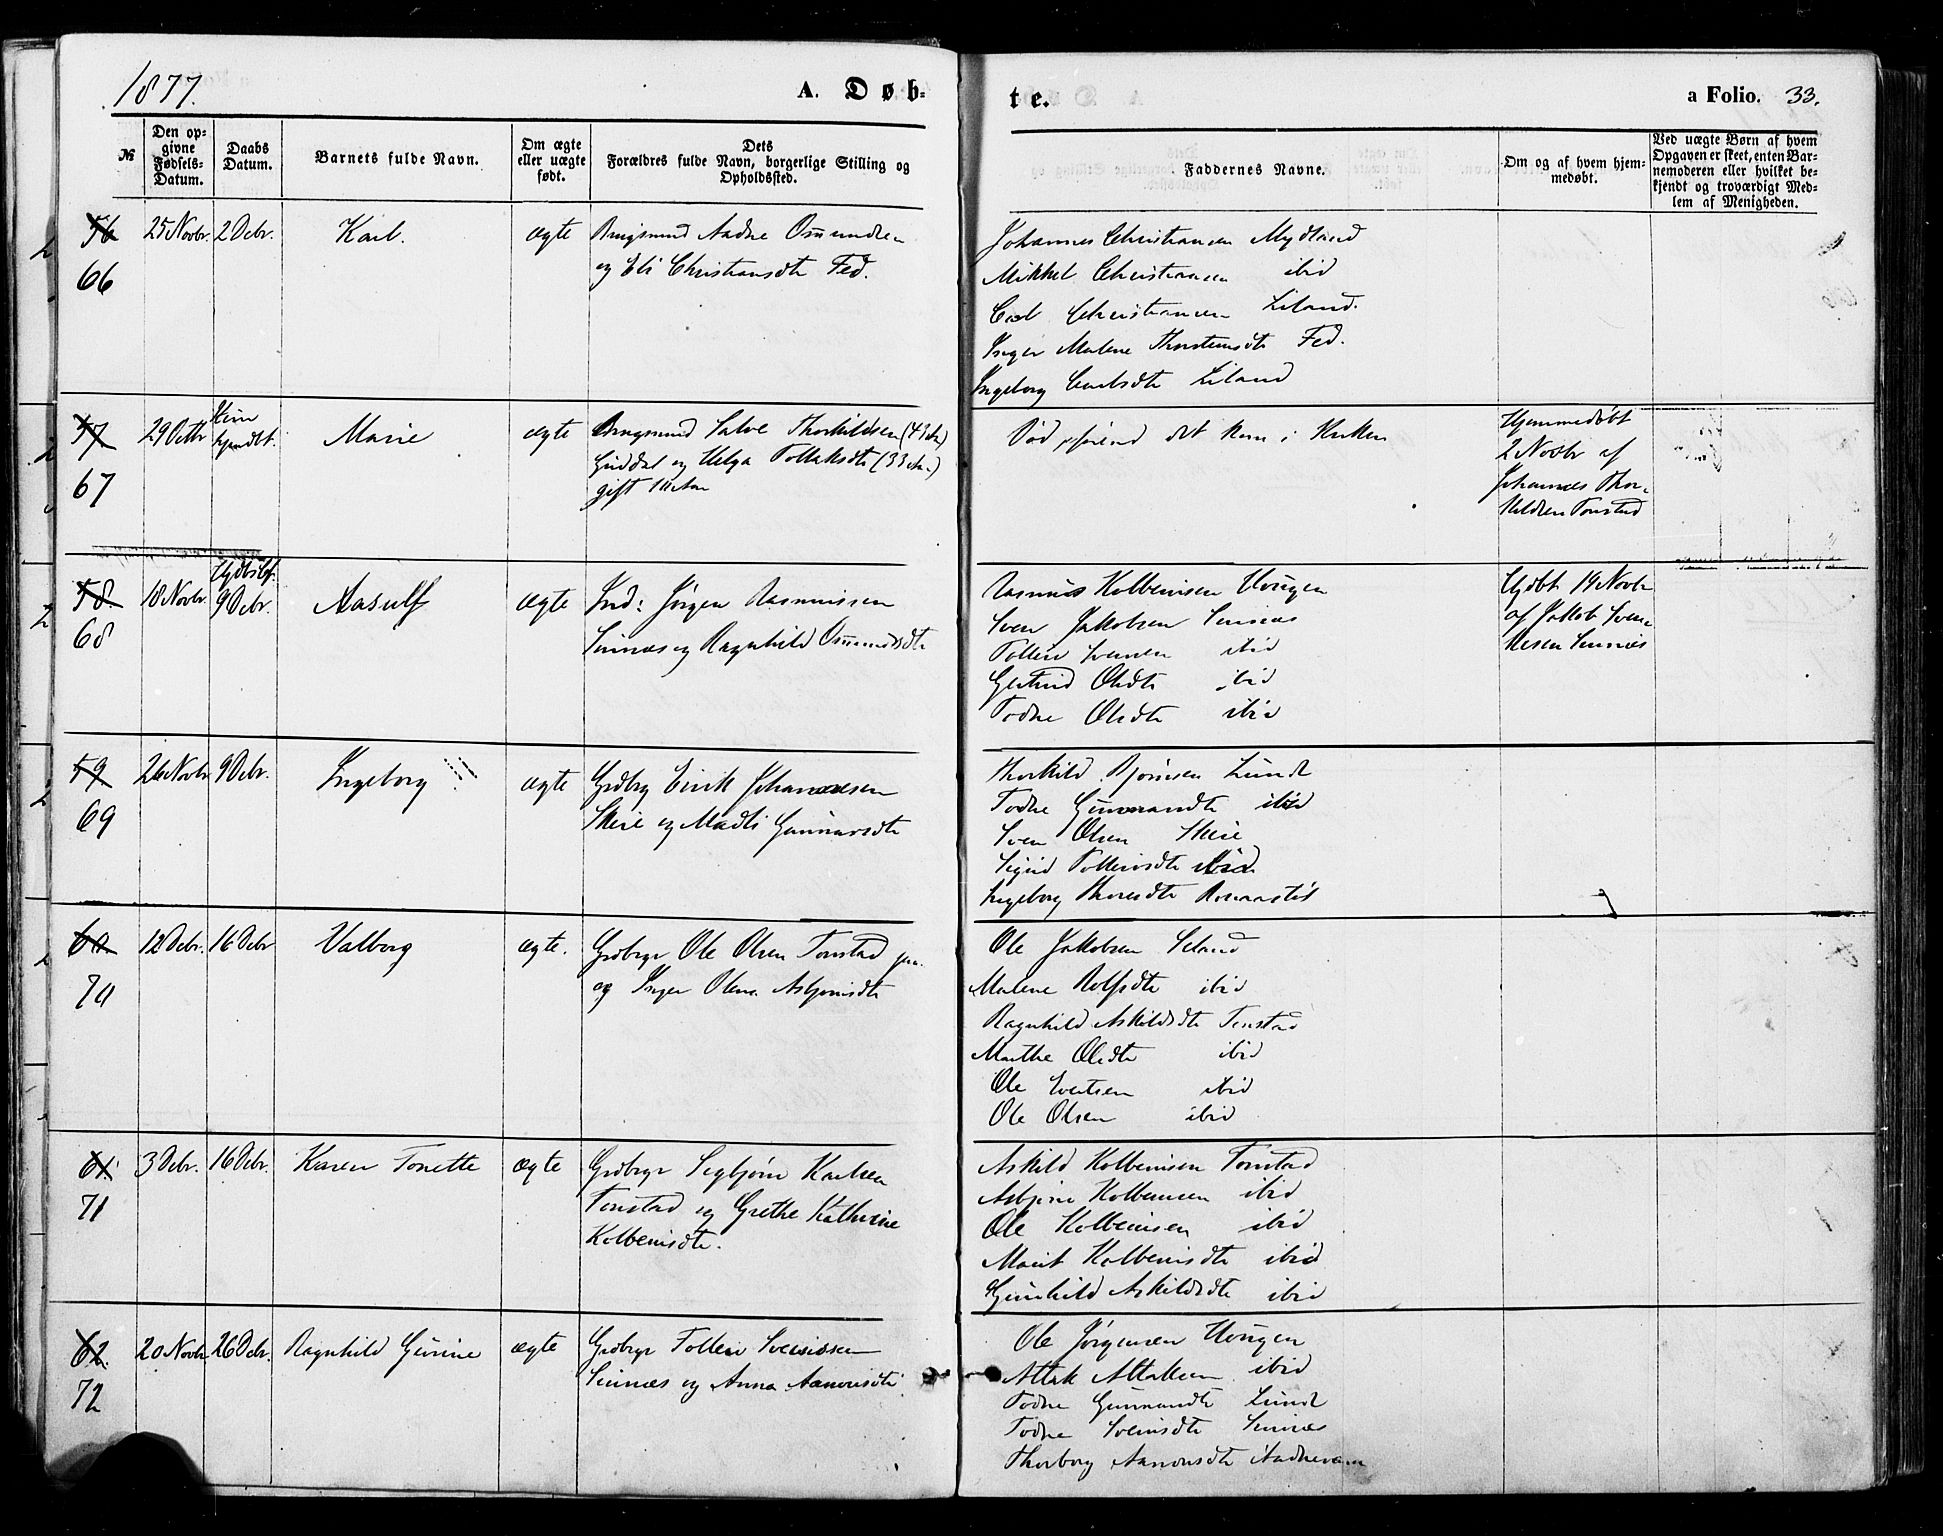 1877.
A. Døb-
te.
a Folio. 33.
№
Den opgivne Fødsels-Datum.
Daabs Datum.
Barnets fulde Navn.
Om ægte eller uægte født.
Dets Forældres fulde Navn, borgerlige Stilling og Opholdssted.
Faddernes Navne.
Om og af hvem hjemmedøbt.
Ved uægte Børn af hvem Opgaven er skeet, enten Barnemoderen eller hvilket bekjendt og troværdigt Medlem af Menigheden.
56 25 Novbr. 2 Decbr. Karl. ægte Brugsmand Aadne Osmundsen
66 og Eli Christiansdtr Fed.
Johannes Christiansen Mydland
Mikkel Christiansen ibid
Carl Christiansen Liland.
Inger Malene Thorsteinsdtr Fed.
Ingeborg Carlsdtr Liland
57 29 Octbr Marie ægte Brugsmand Salve Thorkildsen (43 Aar)
67 Guddal og Helga Tollaksdtr (33 Aar.)
gift 10 Aar
Død førend det kom i Kirken
Hjemmedøbt
2 Novbr af
Johannes Thor-
kildsen Tonstad
58. 18 Novbr. 9 Decbr. Aasulf ægte Ind: Jørgen Rasmussen
68 Sinnæs og Ragnhild Osmundsdtr
Rasmus Kolbeinsen Hougen
Sven Jakobsen Sinnæs
Tollein Svensen ibid
Gjertrud Olsdtr ibid
Todne Olsdtr ibid
Hjdbt 19 Novbr
af Jakob Sven-
Sinnæs
59 26 Novbr 9 Decbr. Ingeborg ægte Grdbrg Eirik Johannesen
69 Skeie og Madli Gunnarsdtr
Thorkild Bjørnsen Lunde
Todne Gunnarsdtr ibid
Sven Olsen Skeie
Sigrid Tolleivsdtr ibid
Ingeborg Thoresdtr
60. 12 Decbr. 16 Decbr Valborg ægte. Grdbrgr Ole Olsen Tonstad
70 og Inger Olena Asbjørnsdtr
Ole Jakobsen Seland
Malene Rolfsdtr ibid
Ragnhild Askildsdtr Tonstad
Marthe Olsdtr ibid
Ole Evertsen ibid
Ole Olsen ibid
61. 3 Decbr. 16 Decbr. Karen Tonette ægte Grdbrgr Segbjørn Karlsen
71 Tonstad og Grethe Kathrine
Kolbeinsdtr.
Askild Kolbeinsen Tonstad
Asbjørn Kolbeinsen ibid
Ole Kolbeinsen ibid
Marit Kolbeinsdtr ibid
Gunhild Askildsdtr ibid
62. 20 Novbr 26 Decbr. Ragnhild Gurine ægte Grdbrgr Tollein Sveinsen
72 Sinnæs og Anna Aanonsdtr
Ole Jørgensen Hougen
Attak Attaksen ibid
Todne Gunnarsdtr Lunde
Todne Sveinsdtr Sinnæs
Thorborg Aanonsdtr Aadnevam